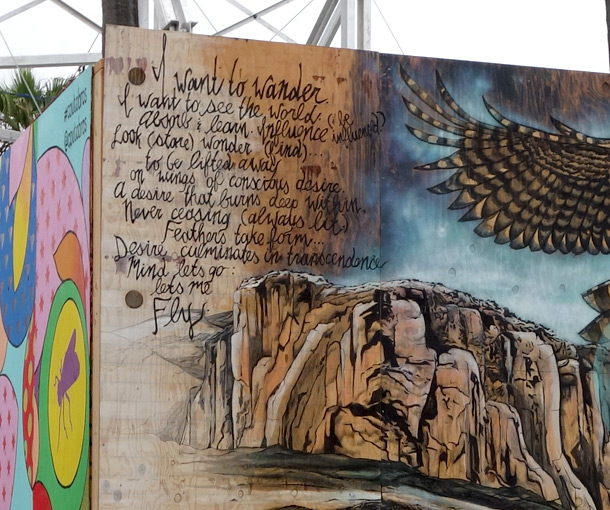 I want to wander.
I want to see the world:
Absorb & learn influence (be influenced?)
Look (stare) wonder (find)...
to be lifted away
on wings of conscious desire.
A desire that burns deep within.
Never ceasing (always lit)
Feathers take form...
Desire culminates in transcendence
Mind lets go:
lets me
Fly